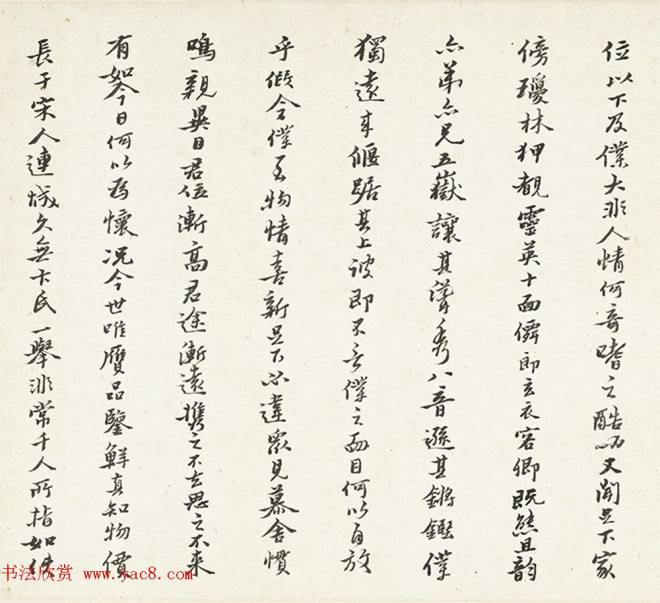 位以下及僕大非人情何奇嗜之酷而又聞足下家
傍瓊林狎覩靈英十面僻即玄衣客卿既焦且韵
亦弟亦兄五嶽讓其聳秀八音遜其鏘鏗僕
獨遠來偃踞其上彼即不言僕之面目何以自放
乎假令僕至物情喜新足下必違衆見慕舍慣
鳴親異日君位漸高君途漸遠携之不去思之不來
有如今日何以為懷况今世唯贋品鑒鮮真知物價
長于宋人連城久無卞氏一舉非常千人所指如使
书法欣赏 www.yac8.com